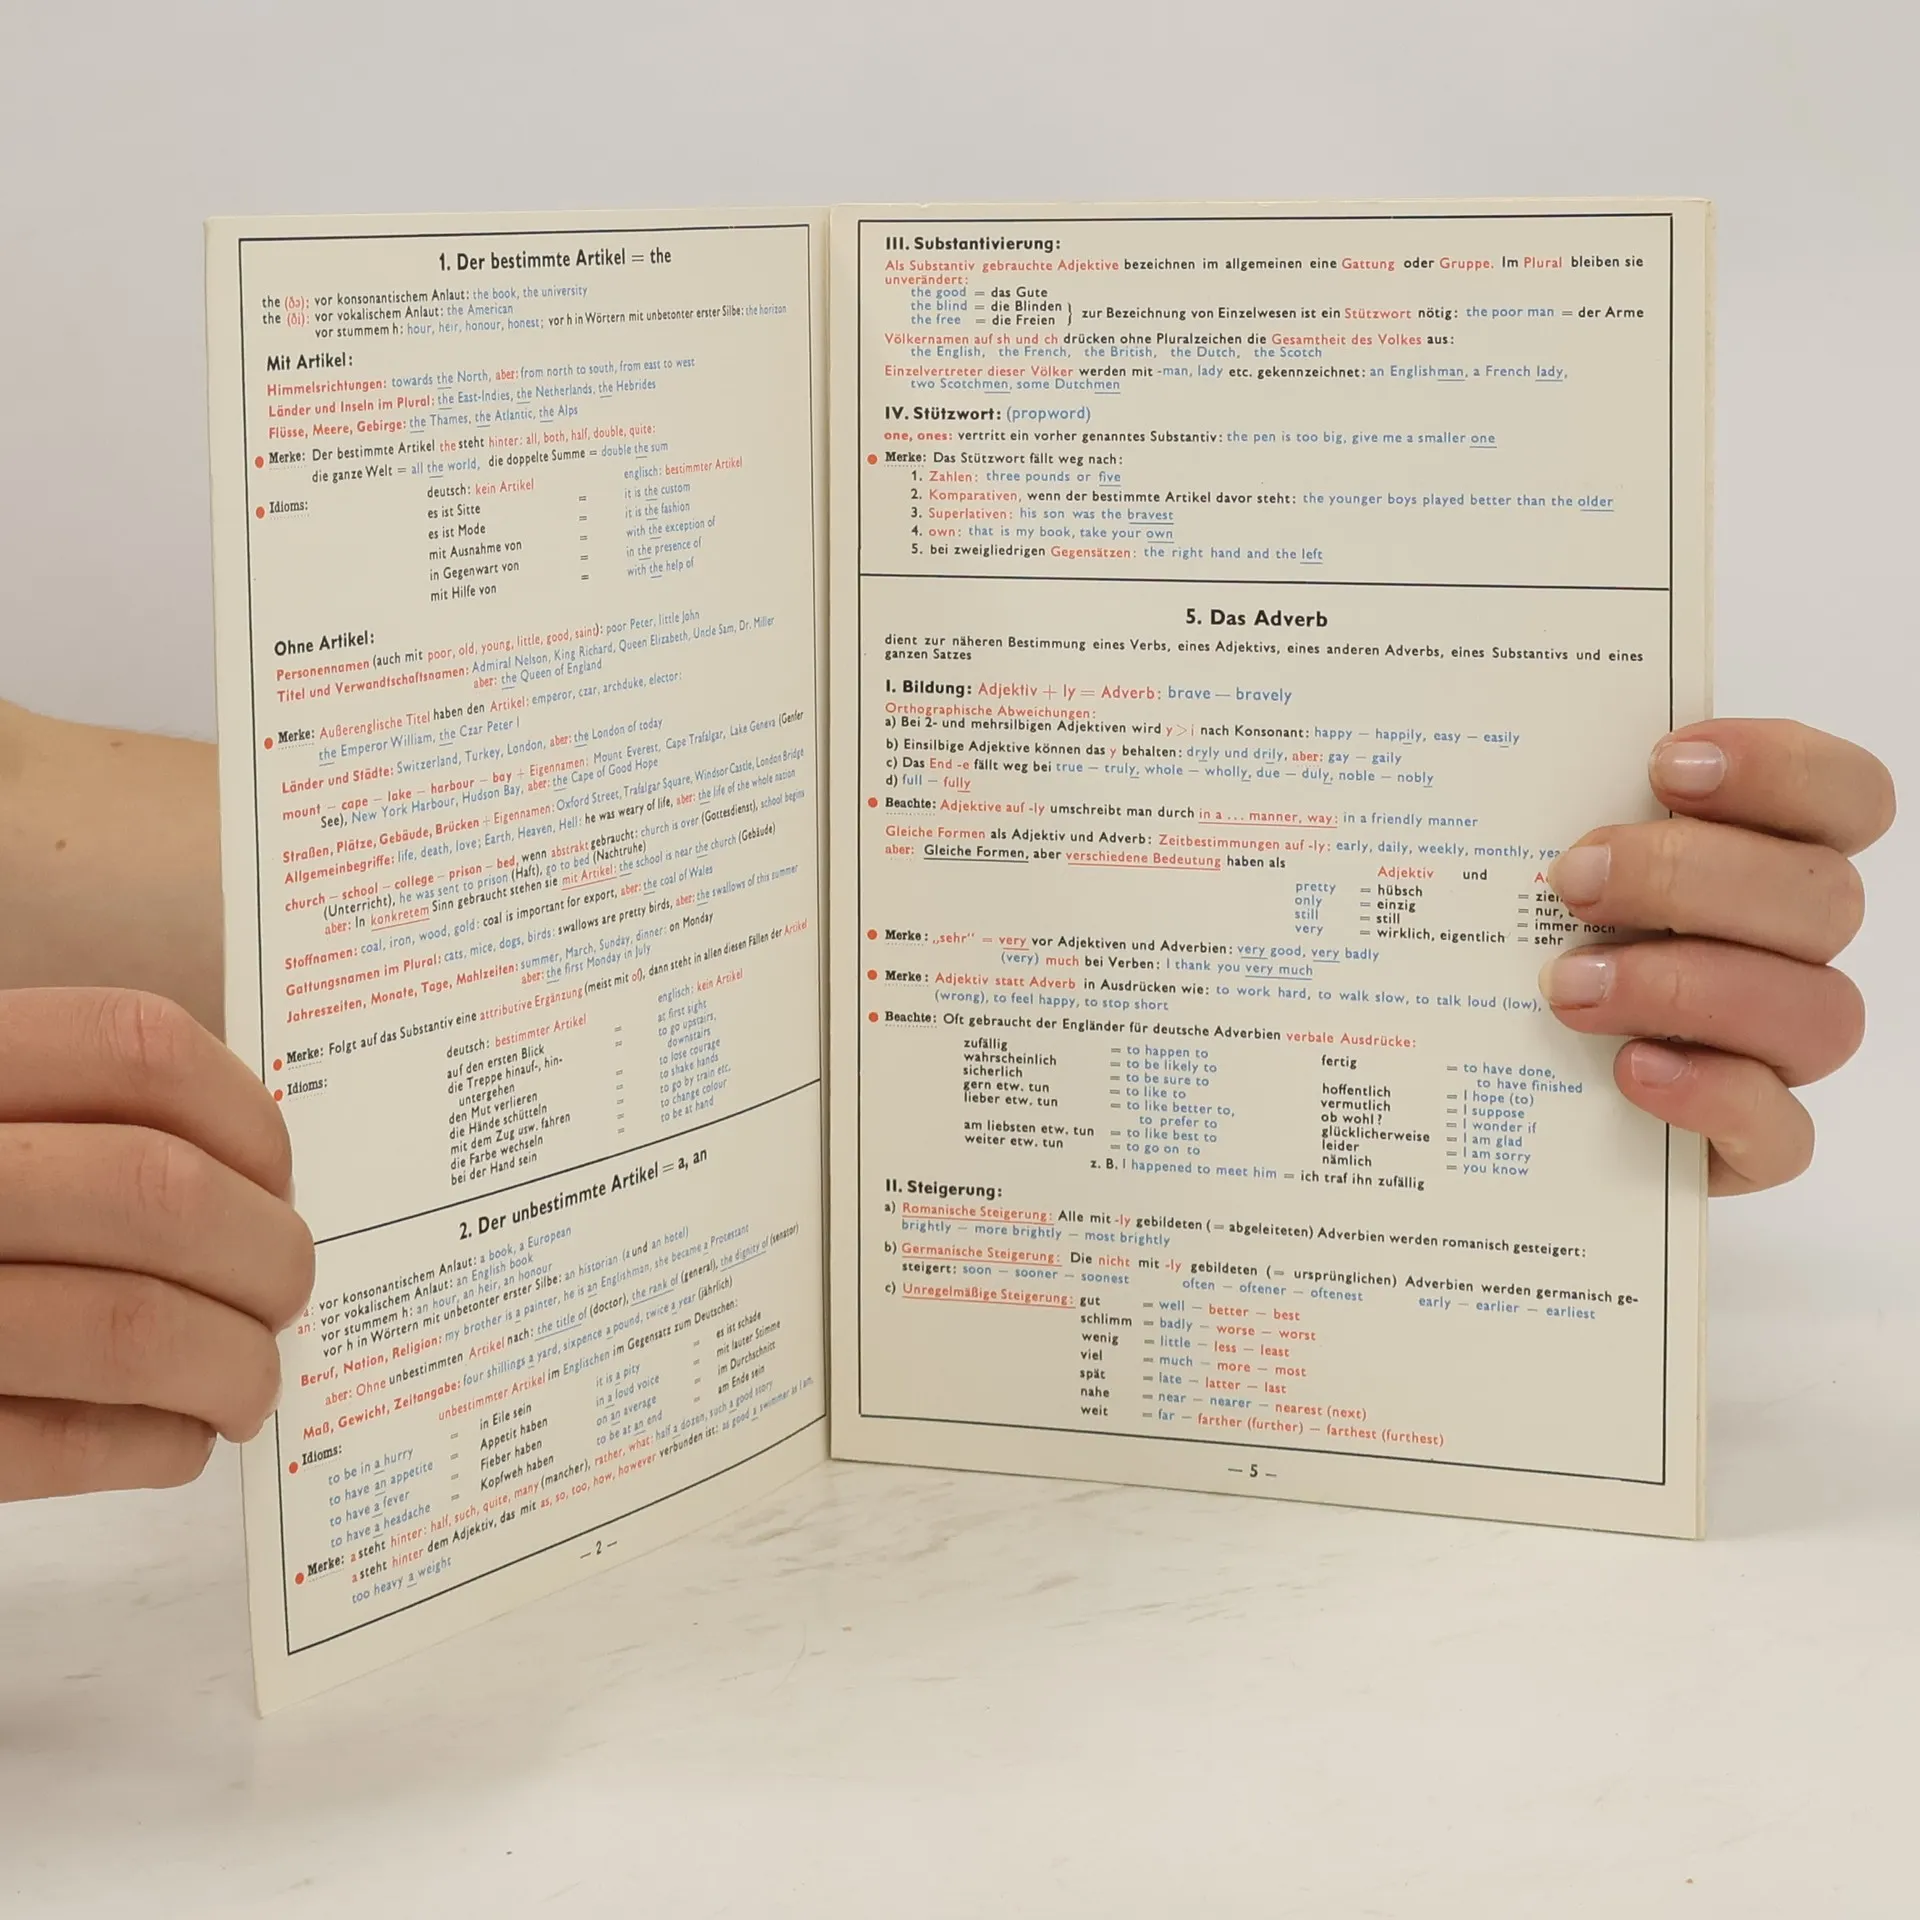 1. Der bestimmte Artikel = the
the (ðə): vor konsonantischem Anlaut: the book, the university
the (ði): vor vokalischem Anlaut: the American
vor stummem h: hour, heir, honour, honest; vor h in Wörtern mit unbetonter erster Silbe: the horizon
Mit Artikel:
Himmelsrichtungen: towards the North, aber: from north to south, from east to west
Länder und Inseln im Plural: the East-Indies, the Netherlands, the Hebrides
Flüsse, Meere, Gebirge: the Thames, the Atlantic, the Alps
Merke: Der bestimmte Artikel the steht hinter: all, both, half, double, quite:
die ganze Welt = all the world, die doppelte Summe = double the sum
Idioms: deutsch: kein Artikel englisch: bestimmter Artikel
es ist Sitte = it is the custom
es ist Mode = it is the fashion
mit Ausnahme von = with the exception of
in Gegenwart von = in the presence of
mit Hilfe von = with the help of
Ohne Artikel:
Personennamen (auch mit poor, old, young, little, good, saint): poor Peter, little John
Titel und Verwandtschaftsnamen: Admiral Nelson, King Richard, Queen Elizabeth, Uncle Sam, Dr. Miller
aber: the Queen of England
Merke: Außerenglische Titel haben den Artikel: emperor, czar, archduke, elector:
the Emperor William, the Czar Peter I
Länder und Städte: Switzerland, Turkey, London, aber: the London of today
mount – cape – lake – harbour – bay + Eigennamen: Mount Everest, Cape Trafalgar, Lake Geneva (Genfer
See), New York Harbour, Hudson Bay, aber: the Cape of Good Hope
Straßen, Plätze, Gebäude, Brücken + Eigennamen: Oxford Street, Trafalgar Square, Windsor Castle, London Bridge
Allgemeinbegriffe: life, death, love; Earth, Heaven, Hell: he was weary of life, aber: the life of the whole nation
church – school – college – prison – bed, wenn abstrakt gebraucht: church is over (Gottesdienst), school begins
(Unterricht), he was sent to prison (Haft), go to bed (Nachtruhe)
aber: In konkretem Sinn gebraucht stehen sie mit Artikel: the school is near the church (Gebäude)
Stoffnamen: coal, iron, wood, gold: coal is important for export, aber: the coal of Wales
Gattungsnamen im Plural: cats, mice, dogs, birds: swallows are pretty birds, aber: the swallows of this summer
Jahreszeiten, Monate, Tage, Mahlzeiten: summer, March, Sunday, dinner: on Monday
aber: the first Monday in July
Merke: Folgt auf das Substantiv eine attributive Ergänzung (meist mit of), dann steht in allen diesen Fällen der Artikel
Idioms: deutsch: bestimmter Artikel englisch: kein Artikel
auf den ersten Blick = at first sight
die Treppe hinauf-, hin- = to go upstairs,
untergehen downstairs
den Mut verlieren = to lose courage
die Hände schütteln = to shake hands
mit dem Zug usw. fahren = to go by train etc.
die Farbe wechseln = to change colour
bei der Hand sein = to be at hand
2. Der unbestimmte Artikel = a, an
a: vor konsonantischem Anlaut: a book, a European
an: vor vokalischem Anlaut: an English book
vor stummem h: an hour, an heir, an honour
vor h in Wörtern mit unbetonter erster Silbe: an historian (a und an hotel)
Beruf, Nation, Religion: my brother is a painter, he is an Englishman, she became a Protestant
aber: Ohne unbestimmten Artikel nach: the title of (doctor), the rank of (general), the dignity of (senator)
Maß, Gewicht, Zeitangabe: four shillings a yard, sixpence a pound, twice a year (jährlich)
unbestimmter Artikel im Englischen im Gegensatz zum Deutschen:
Idioms:
to be in a hurry = in Eile sein it is a pity = es ist schade
to have an appetite = Appetit haben in a loud voice = mit lauter Stimme
to have a fever = Fieber haben on an average = im Durchschnitt
to have a headache = Kopfweh haben to be at an end = am Ende sein
Merke: a steht hinter: half, such, quite, many (mancher), rather, what: half a dozen, such a good story
a steht hinter dem Adjektiv, das mit as, so, too, how, however verbunden ist: as good a swimmer as I am,
too heavy a weight
– 2 –
III. Substantivierung:
Als Substantiv gebrauchte Adjektive bezeichnen im allgemeinen eine Gattung oder Gruppe. Im Plural bleiben sie
unverändert:
the good = das Gute
the blind = die Blinden
the free = die Freien } zur Bezeichnung von Einzelwesen ist ein Stützwort nötig: the poor man = der Arme
Völkernamen auf sh und ch drücken ohne Pluralzeichen die Gesamtheit des Volkes aus:
the English, the French, the British, the Dutch, the Scotch
Einzelvertreter dieser Völker werden mit -man, lady etc. gekennzeichnet: an Englishman, a French lady,
two Scotchmen, some Dutchmen
IV. Stützwort: (propword)
one, ones: vertritt ein vorher genanntes Substantiv: the pen is too big, give me a smaller one
Merke: Das Stützwort fällt weg nach:
1. Zahlen: three pounds or five
2. Komparativen, wenn der bestimmte Artikel davor steht: the younger boys played better than the older
3. Superlativen: his son was the bravest
4. own: that is my book, take your own
5. bei zweigliedrigen Gegensätzen: the right hand and the left
5. Das Adverb
dient zur näheren Bestimmung eines Verbs, eines Adjektivs, eines anderen Adverbs, eines Substantivs und eines
ganzen Satzes
I. Bildung: Adjektiv + ly = Adverb: brave — bravely
Orthographische Abweichungen:
a) Bei 2- und mehrsilbigen Adjektiven wird y > i nach Konsonant: happy — happily, easy — easily
b) Einsilbige Adjektive können das y behalten: dryly und drily, aber: gay — gaily
c) Das End -e fällt weg bei true — truly, whole — wholly, due — duly, noble — nobly
d) full — fully
Beachte: Adjektive auf -ly umschreibt man durch in a ... manner, way: in a friendly manner
Gleiche Formen als Adjektiv und Adverb: Zeitbestimmungen auf -ly: early, daily, weekly, monthly,
aber: Gleiche Formen, aber verschiedene Bedeutung haben als
Adjektiv und
pretty = hübsch =
only = einzig = nur,
still = still = immer noch
very = wirklich, eigentlich = sehr
Merke: „sehr“ = very vor Adjektiven und Adverbien: very good, very badly
(very) much bei Verben: I thank you very much
Merke: Adjektiv statt Adverb in Ausdrücken wie: to work hard, to walk slow, to talk loud (low),
(wrong), to feel happy, to stop short
Beachte: Oft gebraucht der Engländer für deutsche Adverbien verbale Ausdrücke:
zufällig = to happen to fertig = to have done,
wahrscheinlich = to be likely to to have finished
sicherlich = to be sure to hoffentlich = I hope (to)
gern etw. tun = to like to vermutlich = I suppose
lieber etw. tun = to like better to, ob wohl? = I wonder if
to prefer to glücklicherweise = I am glad
am liebsten etw. tun = to like best to leider = I am sorry
weiter etw. tun = to go on to nämlich = you know
z. B. I happened to meet him = ich traf ihn zufällig
II. Steigerung:
a) Romanische Steigerung: Alle mit -ly gebildeten (= abgeleiteten) Adverbien werden romanisch gesteigert:
brightly — more brightly — most brightly
b) Germanische Steigerung: Die nicht mit -ly gebildeten (= ursprünglichen) Adverbien werden germanisch ge-
steigert: soon — sooner — soonest often — oftener — oftenest early — earlier — earliest
c) Unregelmäßige Steigerung: gut = well — better — best
schlimm = badly — worse — worst
wenig = little — less — least
viel = much — more — most
spät = late — latter — last
nahe = near — nearer — nearest (next)
weit = far — farther (further) — farthest (furthest)
— 5 —